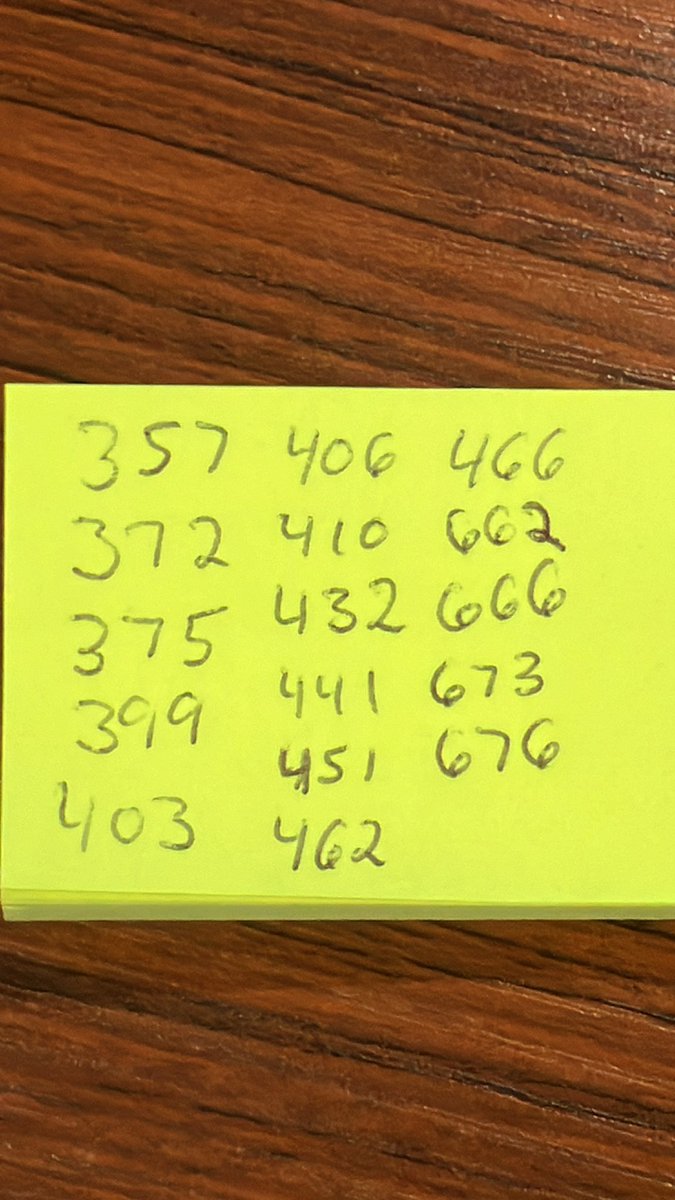 357 406 466
372 410 662
375 432 666
399 441 673
403 451 676
462